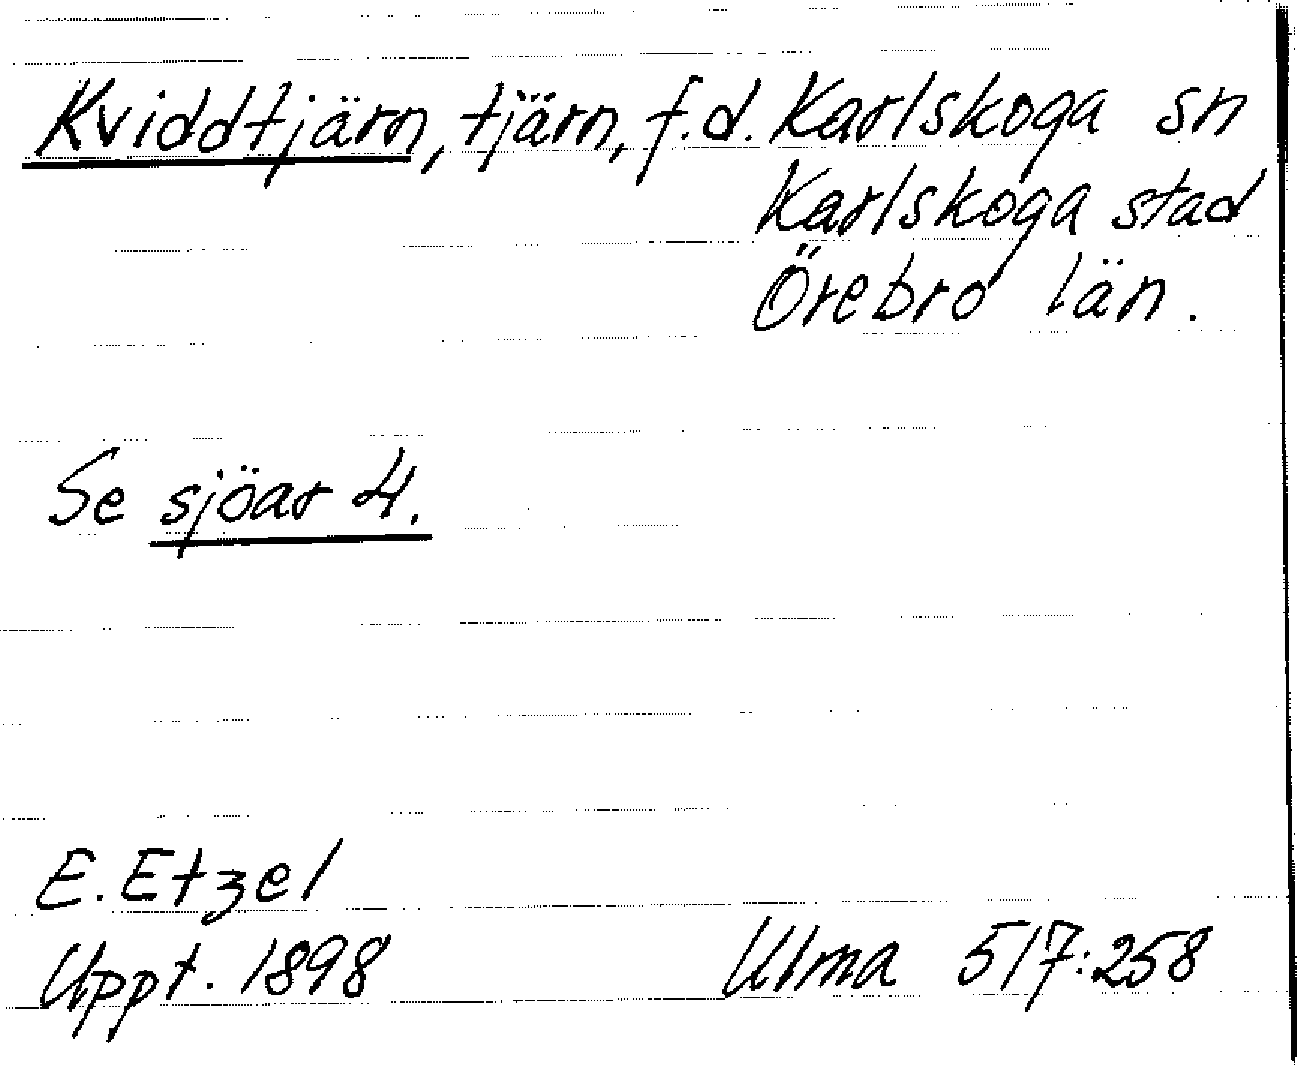 Kviddtjärn, tjärn, f.d. Karlskoga sn
Karlskoga stad
Örebro län.
Se sjöar 4.
E. Etzel
Uppt. 1898
Ulma 517:258